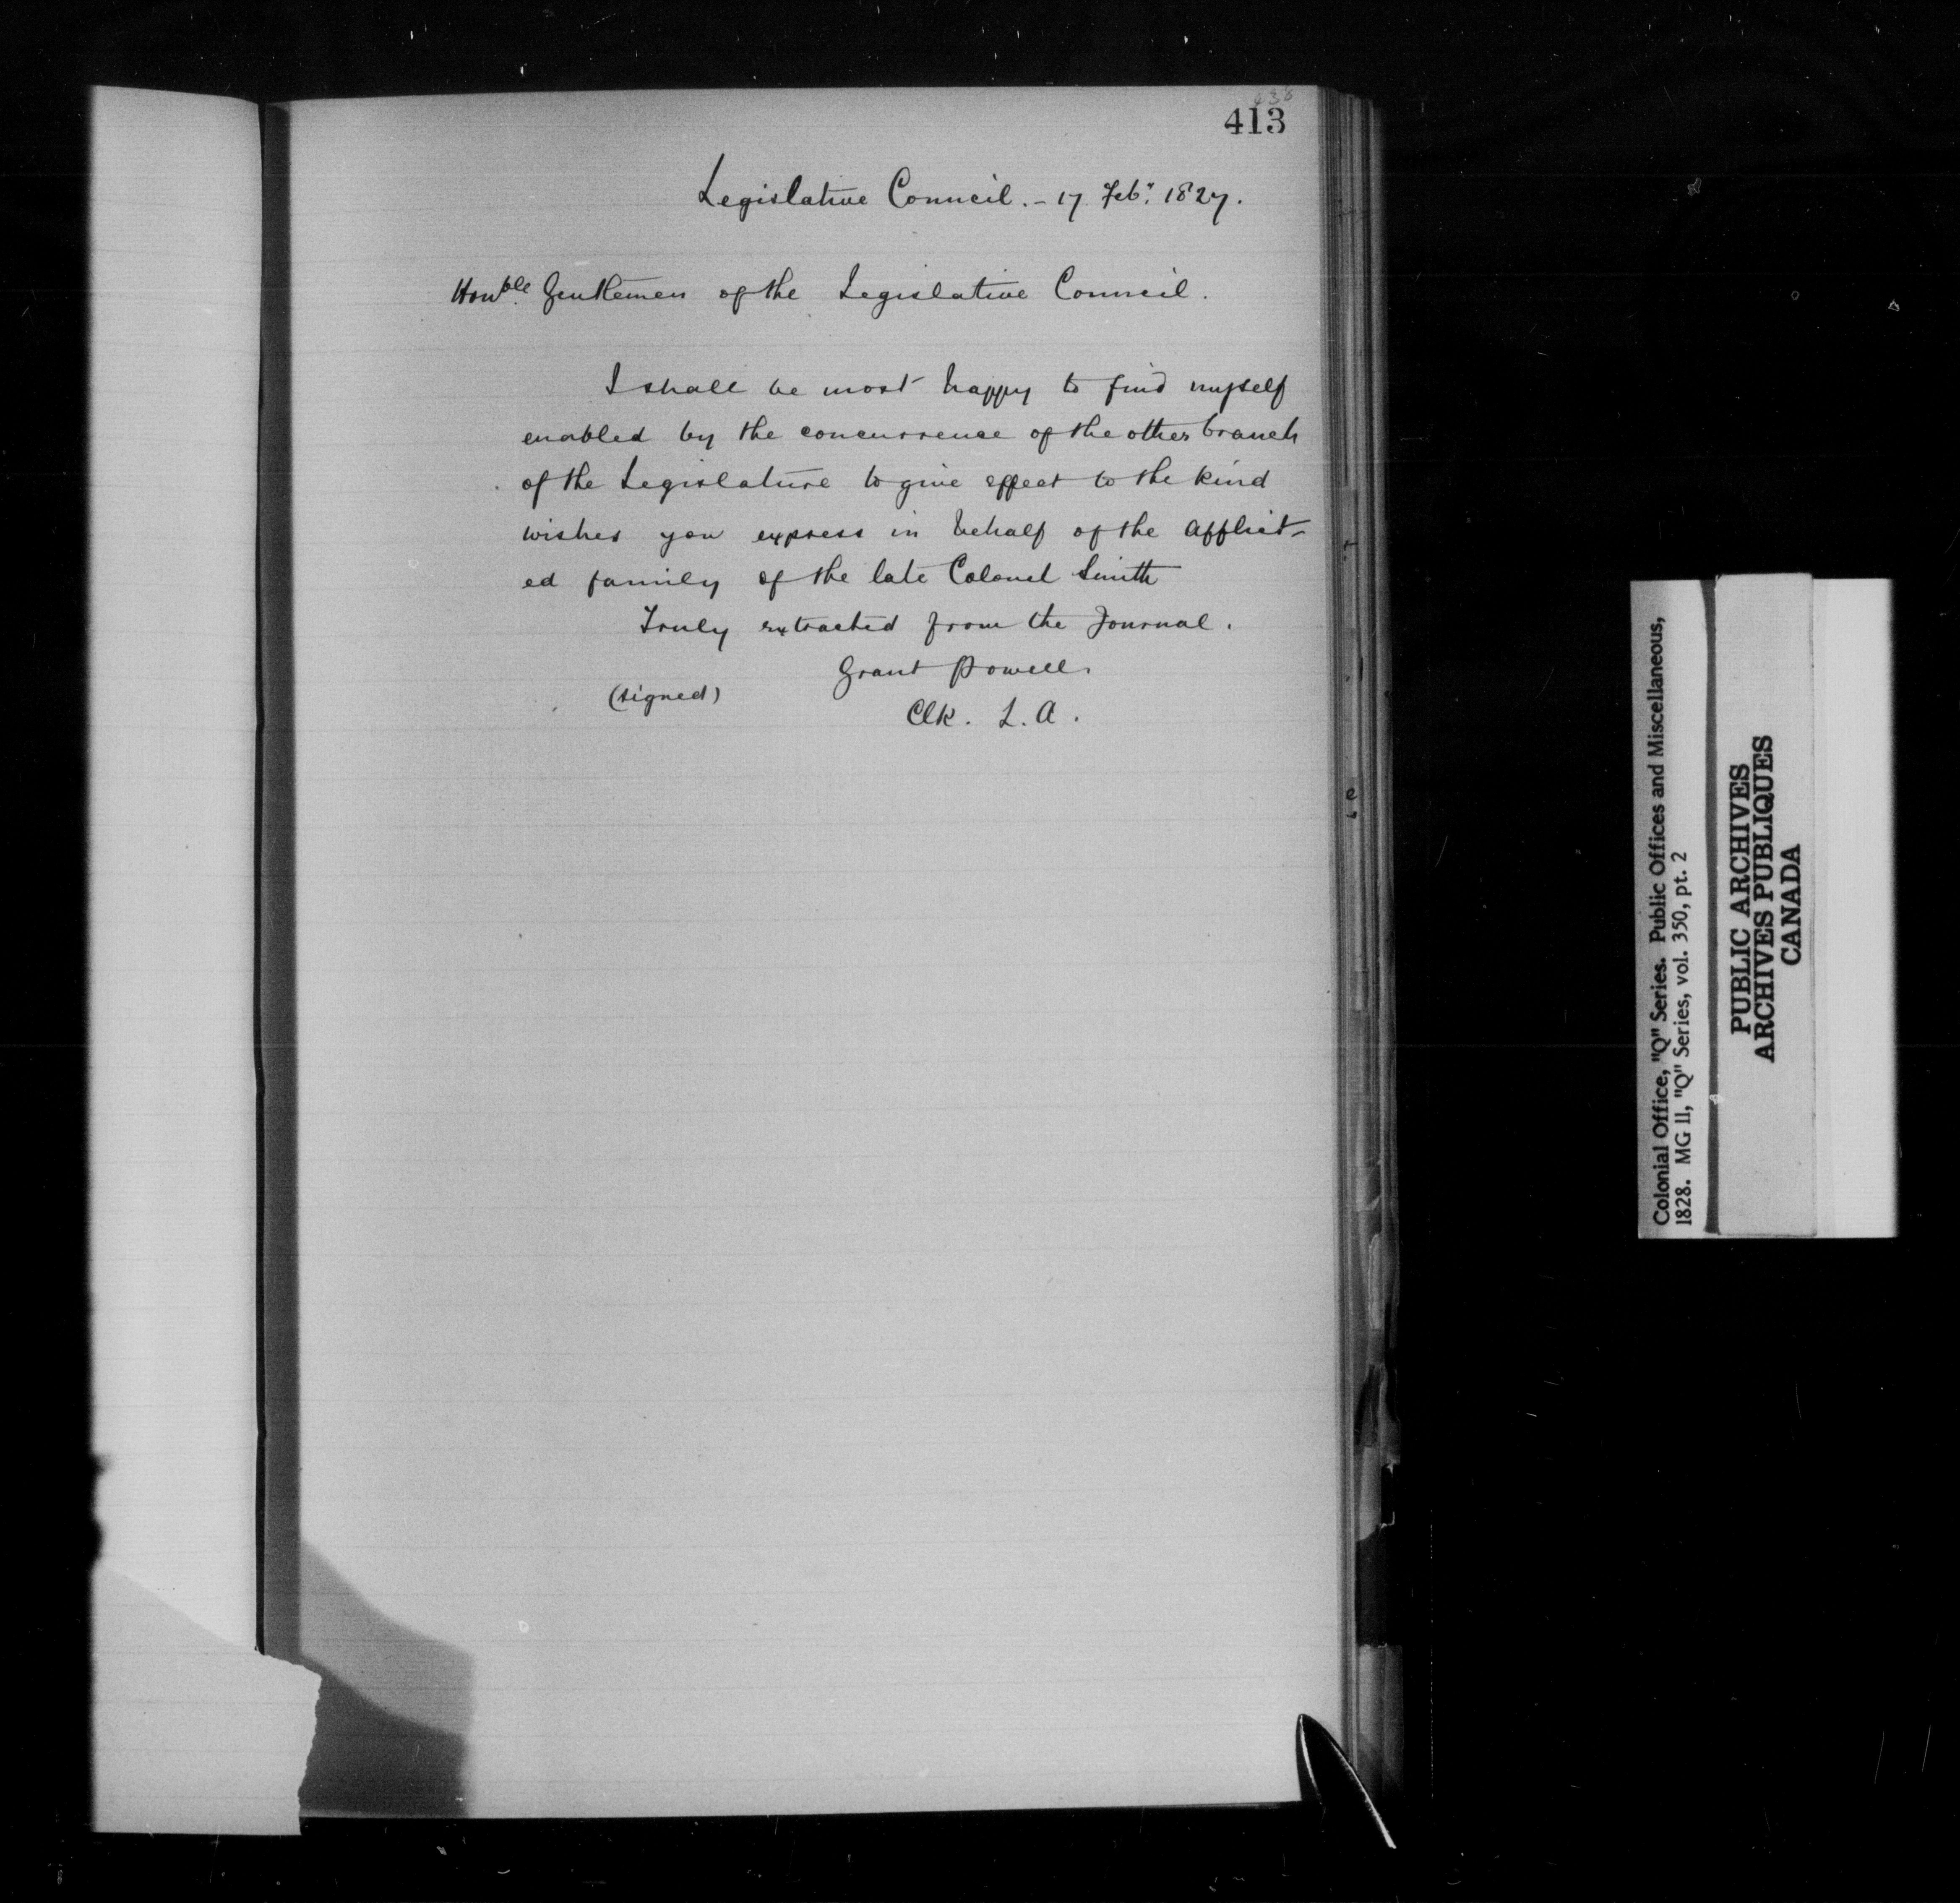 413
Legislative Council. - 17 Feb.y 1827.
Honble Gentlemen of the Legislative Council.
I shall be most happy to find myself
enabled by the concurrence of the other branch
of the Legislature to give effect to the kind
wishes you express in behalf of the afflict-
ed family of the late Colonel Smith
Truly extracted from the Journal.
Grant Powell.
(signed)
Clk. L. A.
Colonial Office, "Q" Series. Public Offices and Miscellaneous,
1828. MG 11, "Q" Series, vol. 350, pt. 2
PUBLIC ARCHIVES
ARCHIVES PUBLIQUES
CANADA